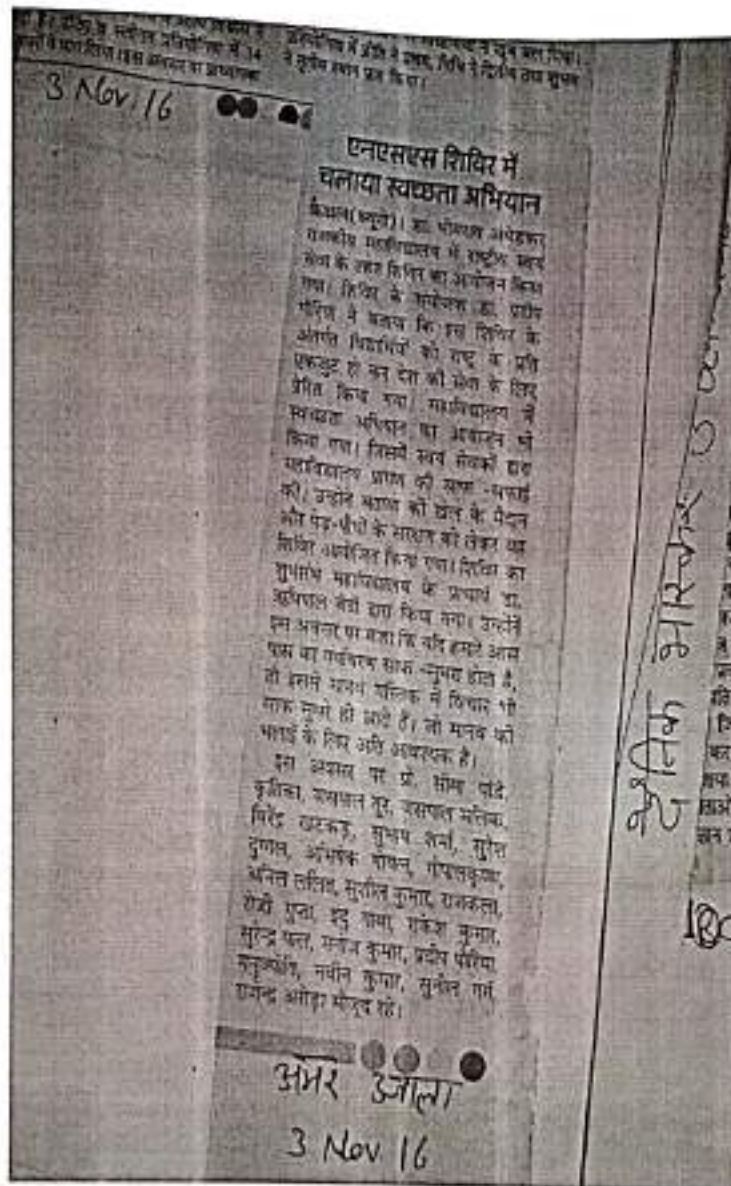 3 Nov 16
एनएसएस शिविर में
चलाया स्वच्छता अभियान
कैथल(ब्यूरो)। डा. भीमराव अंबेडकर
राजकीय महाविद्यालय में राष्ट्रीय स्वयं
सेवा के तहत शिविर का आयोजन किया
गया। शिविर के संयोजक डा. प्रदीप
ने बताया कि इस शिविर के
अंतर्गत विद्यार्थियों को राष्ट्र के प्रति
एकजुट हो कर देश की सेवा के लिए
प्रेरित किया गया। महाविद्यालय में
स्वच्छता अभियान का आयोजन भी
किया गया। जिसमें स्वयं सेवकों द्वारा
महाविद्यालय प्रांगण की साफ -सफाई
की। उन्होंने बताया की खेल के मैदान
और पेड़-पौधों के संरक्षण को लेकर यह
शिविर आयोजित किया गया। शिविर का
शुभारंभ महाविद्यालय के प्राचार्य डा.
ऋषिपाल बेदी द्वारा किया गया। उन्होंने
इस अवसर पर कहा कि यदि हमारे आस
पास का पर्यावरण साफ -सुथरा होता है,
तो इससे मानव मस्तिक में विचार भी
साफ सुथरे हो जाते हैं। जो मानव की
भलाई के लिए अति आवश्यक है।
इस अवसर पर प्रो. सीमा पांडे,
कृतिका, यशपाल तूर, यशपाल मलिक,
विरेंद्र खटकड़, सुभाष शर्मा, सुरेश
दुग्गल, अभिषेक गोयल, गोपालकृष्ण,
अनिल ललित, सुशील कुमार, राजकला,
रोजी गुप्ता, इंदु शर्मा, राकेश कुमार,
सुरेन्द्र पाल, मनोज कुमार, प्रदीप
नवीन कुमार, सुनील गर्ग,
राजेन्द्र अरोड़ा मौजूद रहे।
अमर उजाला
3 Nov 16
दैनिक भास्कर